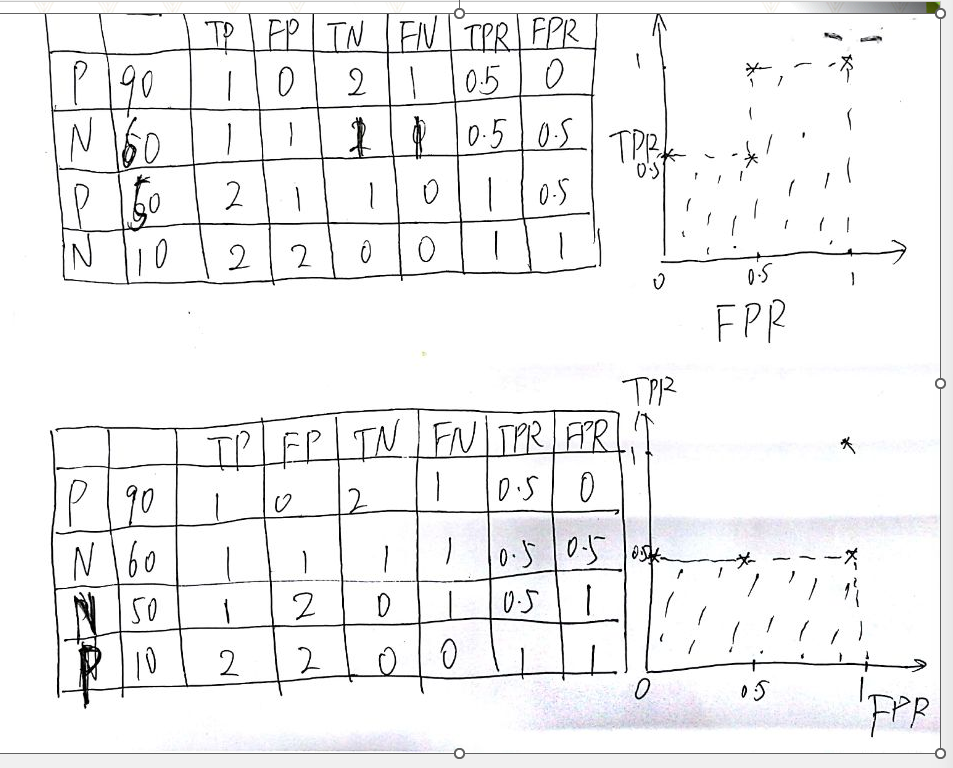 TP FP TN FN TPR FPR
P 90 1 0 2 1 0.5 0
N 60 1 1 1 0.5 0.5
P 50 2 1 1 0 1 0.5
N 10 2 2 0 0 1 1
1
TPR
0.5
0 0.5 1
FPR
TP FP TN FN TPR FPR
P 90 1 0 2 1 0.5 0
N 60 1 1 1 1 0.5 0.5
N 50 1 2 0 1 0.5 1
P 10 2 2 0 0 1 1
TPR
1
0.5
0 0.5 1
FPR